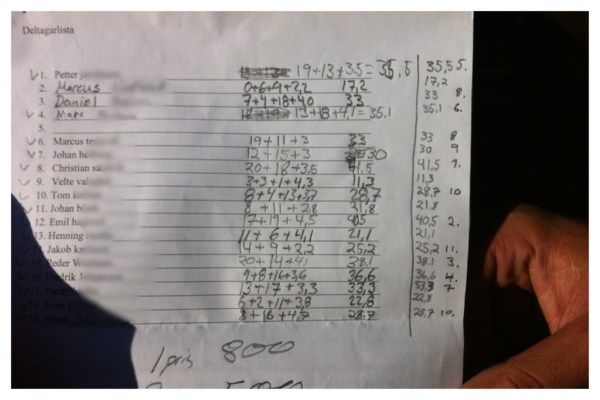 Deltagarlista
1. Petter 19+13+3.5= 35,5 35,5 5.
2. Marcus 0+6+9+2,2 17,2 17,2
3. Daniel 7+4+18+4,0 33 33 8.
4. 13+18+4,1=35.1 35,1 6.
5.
6. Marcus 19+11+3 33 33 8
7. Johan 12+15+3 30 30 9
8. Christian 20+18+3,5 41,5 41,5 1.
9. Velte 3+3+1+4,3 11,3 11,3
10. Tom 28,7 28,7 10
11. Johan 8+11+2,8 21,8 21,8
12. Emil 17+19+4,5 40,5 2.
13. Henning 11+6+4,1 21,1 21,1
Jakob 14+9+2,2 25,2 25,2 11.
20+14+4,1 38,1 38,1 3.
9+8+16+3,6 36,6 36,6 4.
13+17+3,3 33,3 33,3 7
6+2+11+3,8 22,8 22,8
8+16+4,7 28,7 28,7 10.
1 pris 800